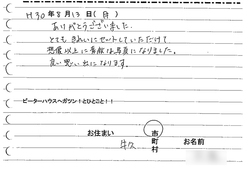 H30年8月13日(月)
ありがとうございました。
とてもきれいにセットしていただけて
想像以上に素敵な写真になりました。
良い思い出になります。
ピーターハウスへガツン！とひとこと！！
お住まい 市町村 お名前
牛久